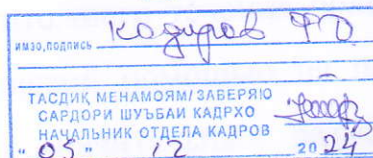 имзо,подпись Кадиров Ф
ТАСДИҚ МЕНАМОЯМ/ЗАВЕРЯЮ
САРДОРИ ШУЪБАИ КАДРҲО
НАЧАЛЬНИК ОТДЕЛА КАДРОВ
"05" 12 2024